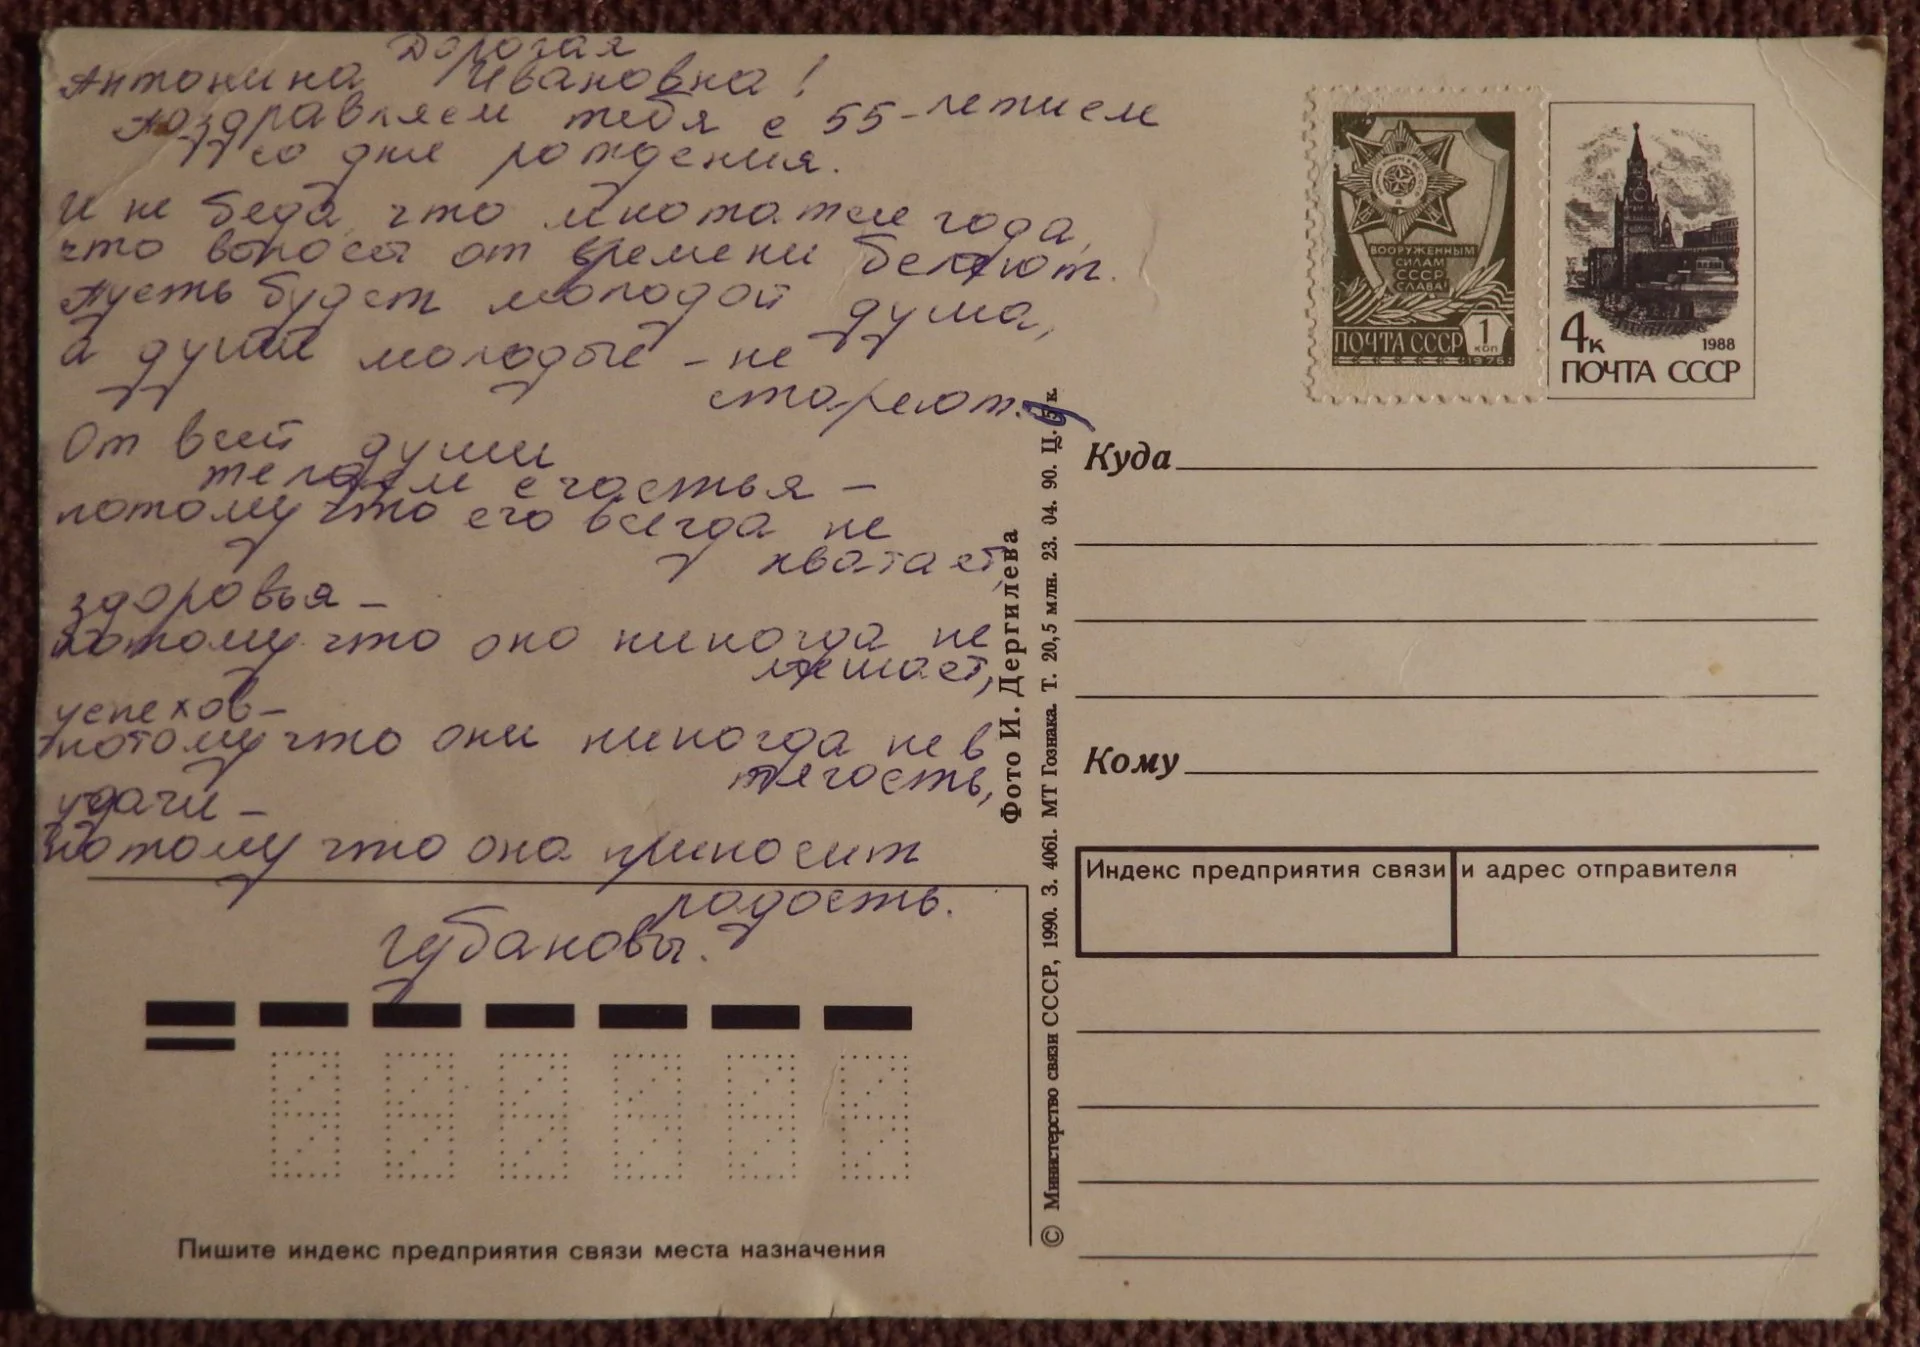 Дорогая
Антонина Ивановна!
Поздравляем тебя с 55-летием
со дня рождения.
И не беда, что множатся года,
что волосы от времени белеют.
Пусть будет молодой душа,
а души молодые - не
стареют.
От всей души
желаем счастья -
потому что его всегда не
хватает,
здоровья -
потому что оно никогда не
мешает,
успехов -
потому что они никогда не в
тягость,
удачи -
потому что она приносит
радость.
Губановы.
Пишите индекс предприятия связи места назначения
Фото И. Дергилева
© Министерство связи СССР, 1990. З. 4061. МТ Гознака. Т. 20,5 млн. 23. 04. 90. Ц. к.
ВООРУЖЕННЫМ
СИЛАМ
СССР
СЛАВА!
ПОЧТА СССР 1
КОП
1976
4к 1988
ПОЧТА СССР
Куда
Кому
Индекс предприятия связи и адрес отправителя